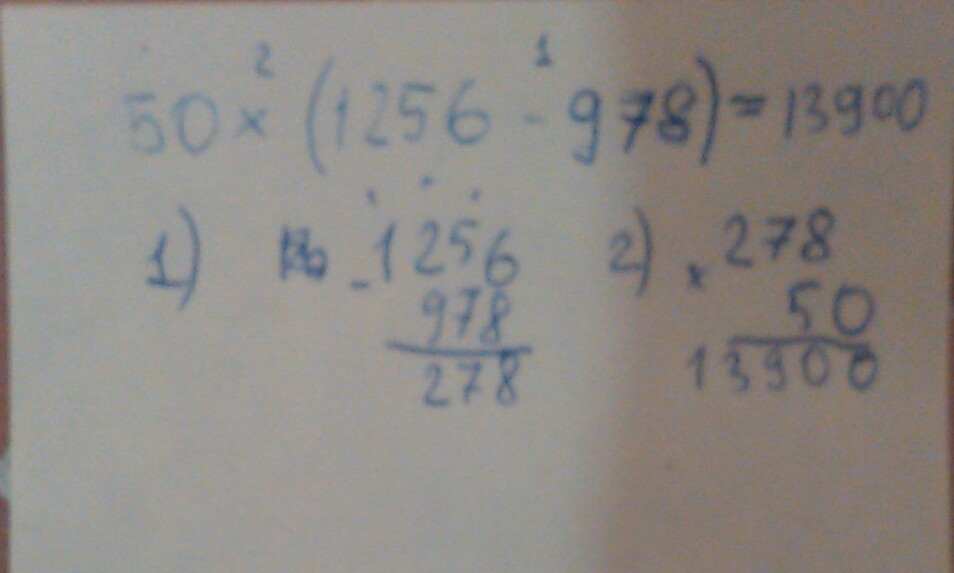 50 × (1256 - 978) = 13900
2 1
1) - 1256
978
278
2) × 278
50
13900